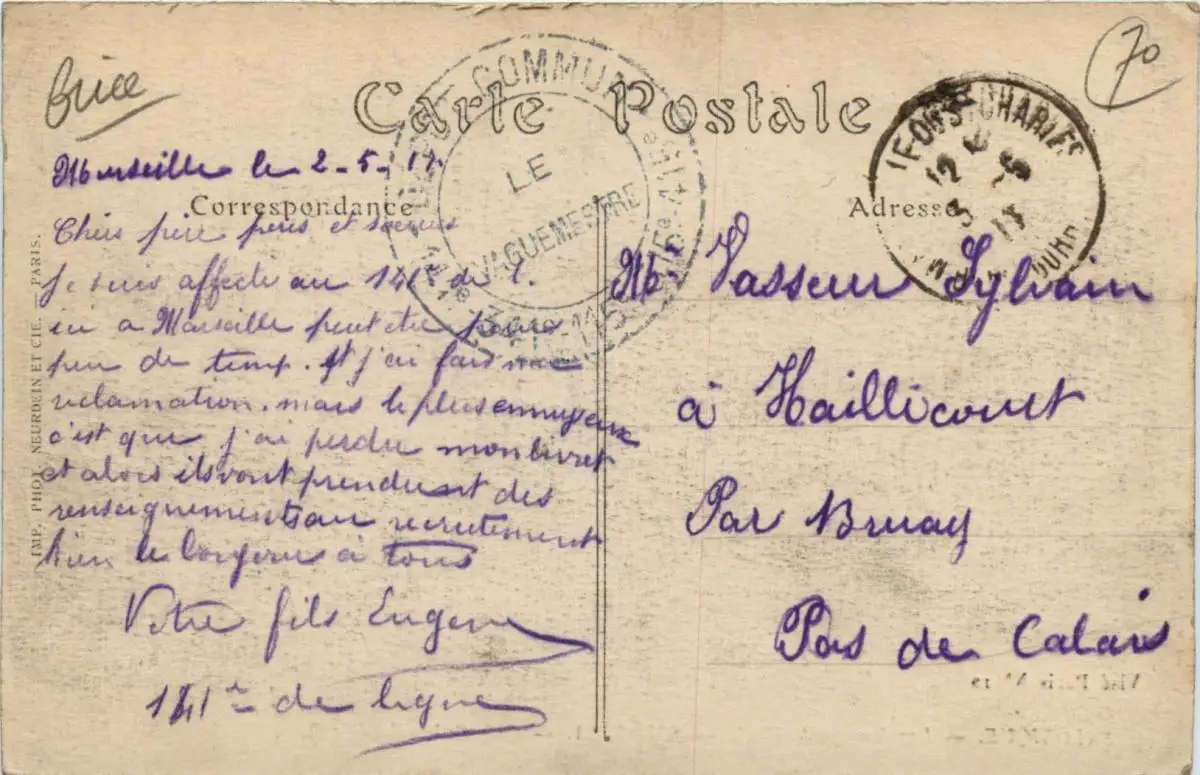 Brice
70
Carte Postale
DÉPOT COMMUN
LE
VAGUEMESTRE
141e 115e
Marseille le 2-5-17
Correspondance
Adresse
Chers père frères et soeurs
Je suis affecté au 141e de l.
ici a Marseille peut etre pour
peu de temp. et j'ai fais une
reclamation. mais le plus ennuyeux
c'est que j'ai perdu mon livret
et alors ils vont prendre des
renseignements au recrutement
bien le bonjour à tous
Votre fils Eugene
141e de ligne
Mr Vasseur Sylvain
à Haillicourt
Par Bruay
Pas de Calais
ST CHARLES
12
3 -5
17
IMP. PHOT. NEURDEIN ET CIE. PARIS.